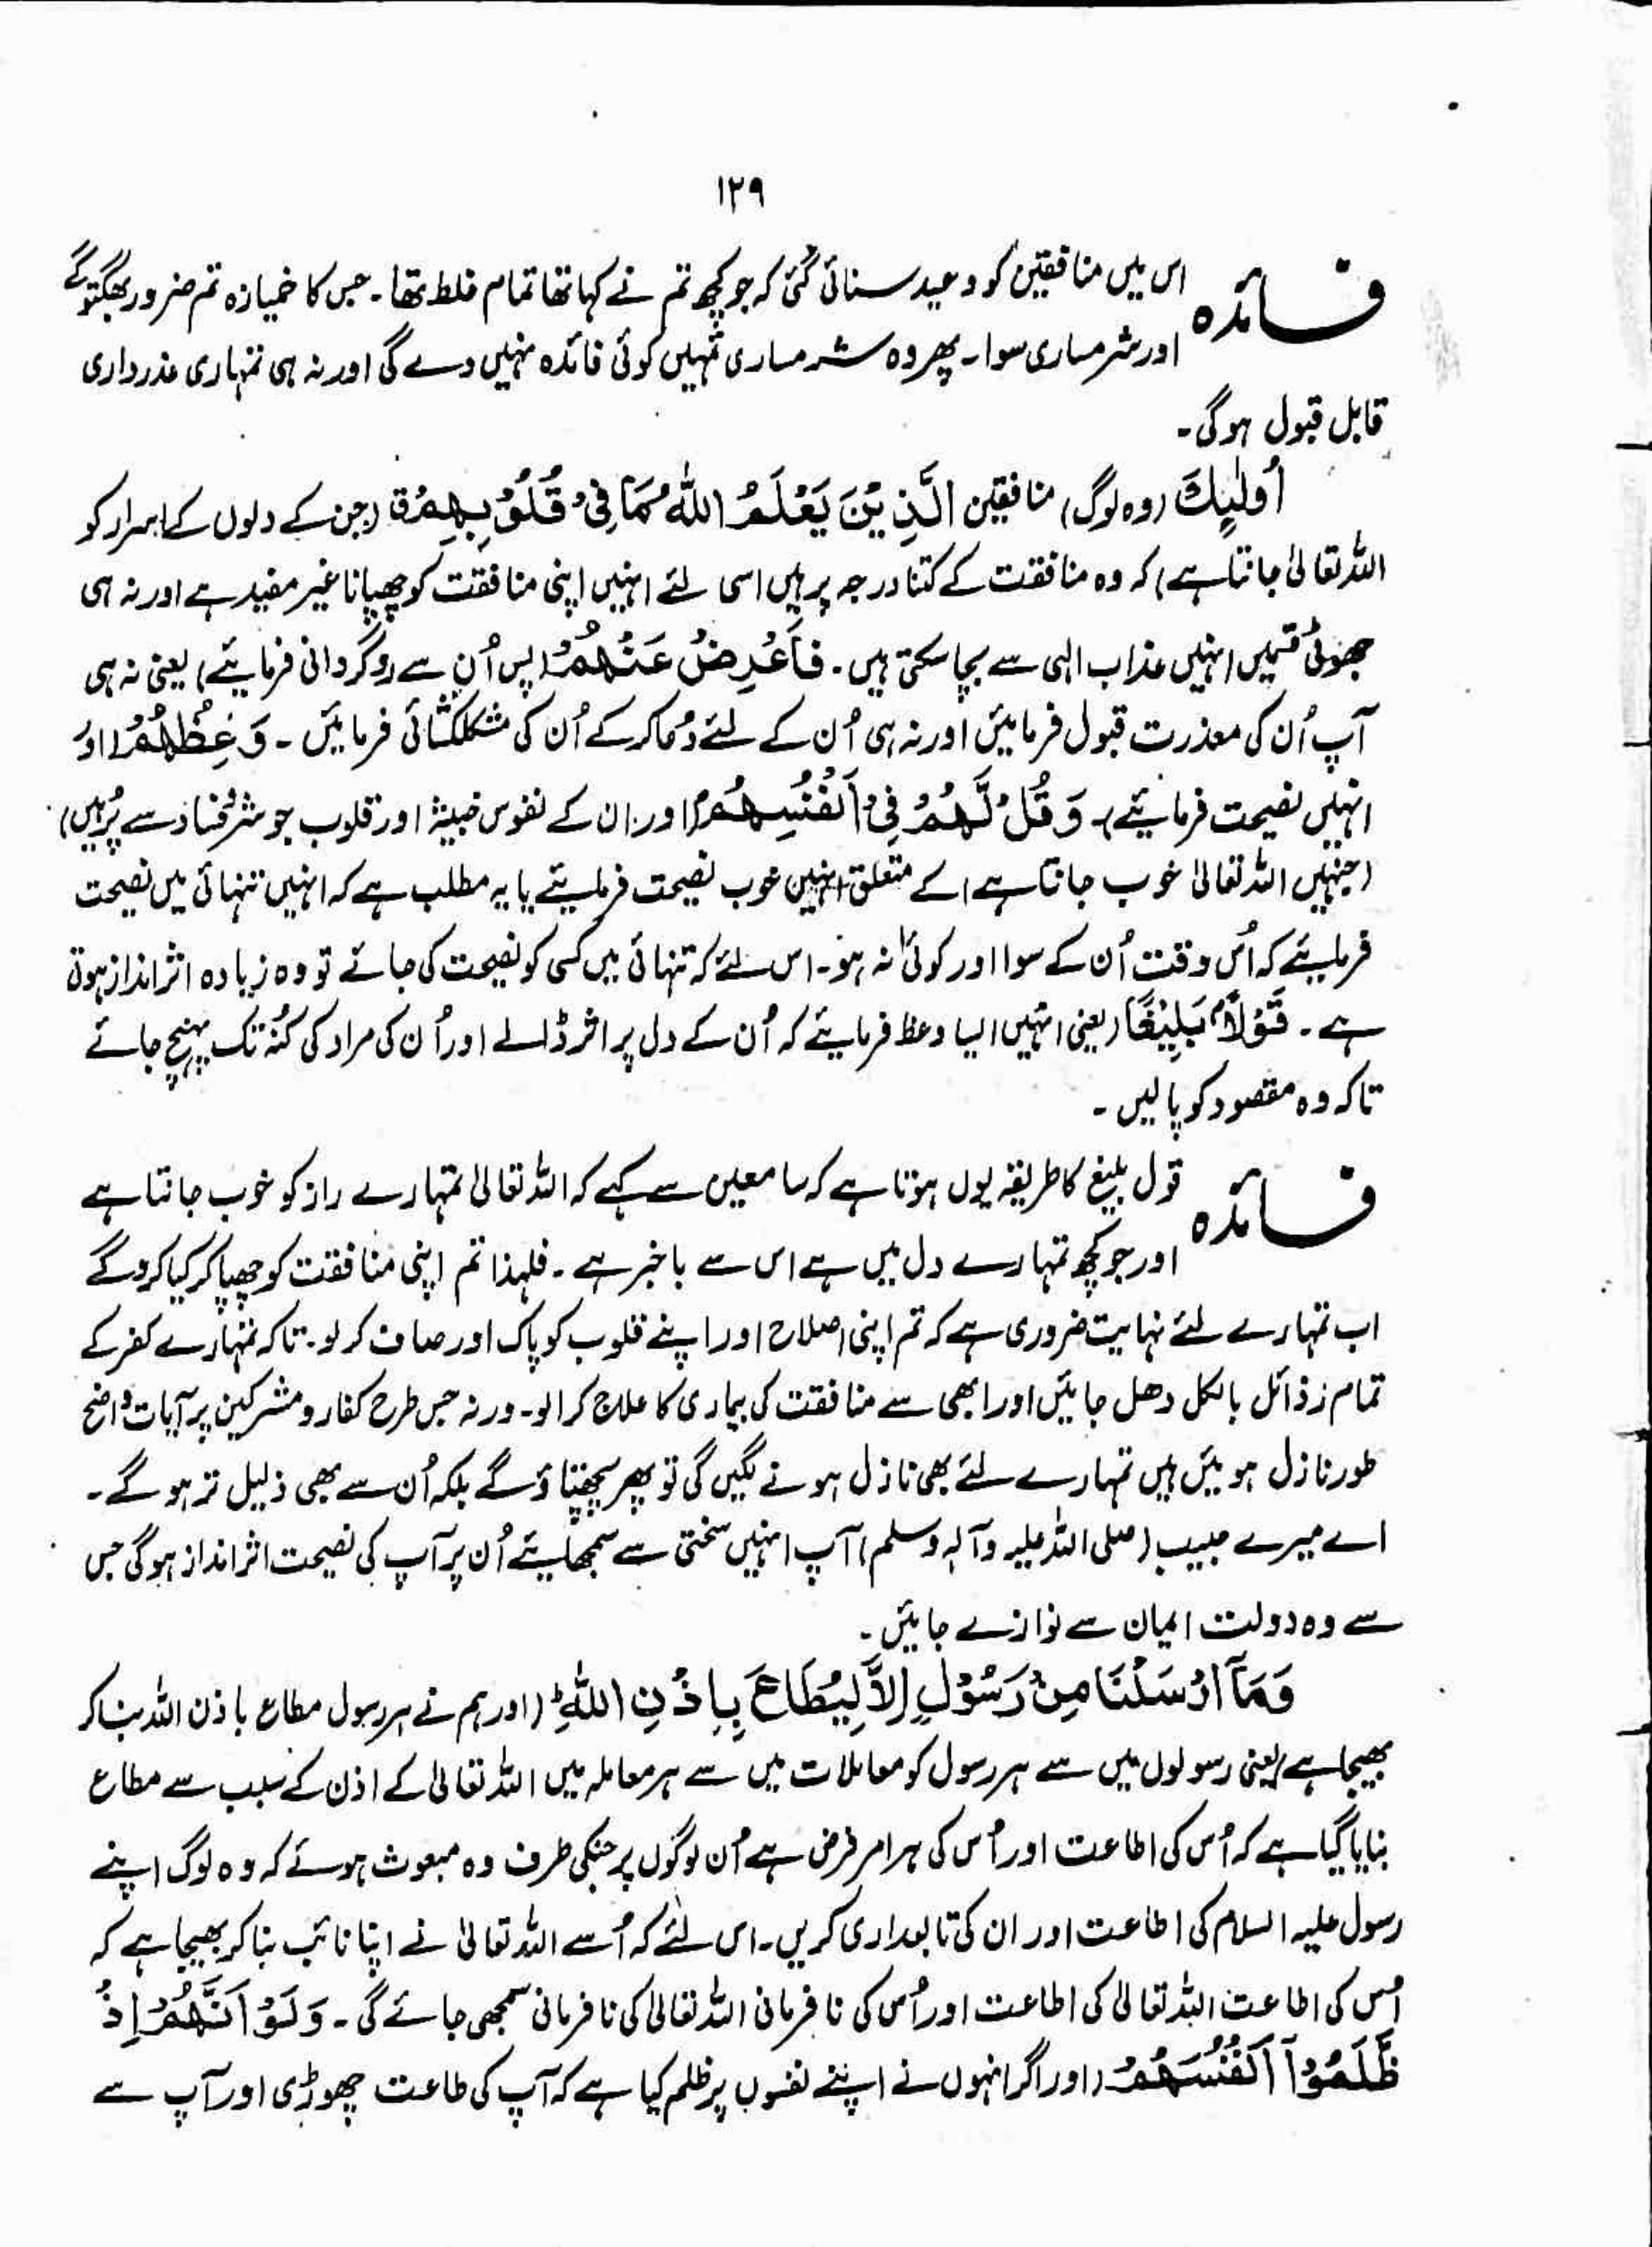 ۱۲۹
فائدہ اس میں منافقین کو وعید سنائی گئی کہ جو کچھ تم نے کہا تھا تمام غلط تھا۔ جس کا خمیازہ تم ضرور بھگتو گے
اور شرمساری سوا۔ پھر وہ شرمساری تمہیں کوئی فائدہ نہیں دے گی اور نہ ہی تمہاری عذرداری
قابل قبول ہوگی۔
اُولٰٓئِكَ (وہ لوگ) منافقین الَّذِیْنَ یَعْلَمُ اللّٰهُ مَا فِیْ قُلُوْبِهِمْ ق (جن کے دلوں کے اسرار کو
اللہ تعالیٰ جانتا ہے) کہ وہ منافقت کے کتنا درجہ پر ہیں اسی لئے انہیں اپنی منافقت کو چھپانا غیر مفید ہے اور نہ ہی
جھوٹی قسمیں انہیں عذاب الہی سے بچا سکتی ہیں۔ فَاَعْرِضْ عَنْهُمْ (پس اُن سے روگردانی فرمائیے) یعنی نہ ہی
آپ اُن کی معذرت قبول فرمائیں اور نہ ہی اُن کے لئے دُعا کر کے اُن کی مشکلکشائی فرمائیں۔ وَعِظْهُمْ (اور
انہیں نصیحت فرمائیے)۔ وَقُلْ لَّهُمْ فِیْٓ اَنْفُسِهِمْ (اور ان کے نفوس خبیثہ اور قلوب جو شر و فساد سے پُر ہیں)
(جنہیں اللہ تعالیٰ خوب جانتا ہے) کے متعلق انہیں خوب نصیحت فرمائیے یا یہ مطلب ہے کہ انہیں تنہائی میں نصیحت
فرمایئے کہ اُس وقت اُن کے سوا اور کوئی نہ ہو۔ اس لئے کہ تنہائی میں کسی کو نصیحت کی جائے تو وہ زیادہ اثر انداز ہوتی
ہے۔ قَوْلًاۢ بَلِیْغًا (یعنی انہیں ایسا وعظ فرمایئے کہ اُن کے دل پر اثر ڈالے اور اُن کی مراد کی کُنہ تک پہنچ جائے
تاکہ وہ مقصود کو پالیں۔
فائدہ قول بلیغ کا طریقہ یوں ہوتا ہے کہ سامعین سے کہے کہ اللہ تعالیٰ تمہارے راز کو خوب جانتا ہے
اور جو کچھ تمہارے دل میں ہے اس سے باخبر ہے۔ فلہذا تم اپنی منافقت کو چھپا کر کیا کرو گے
اب تمہارے لئے نہایت ضروری ہے کہ تم اپنی اصلاح اور اپنے قلوب کو پاک اور صاف کر لو۔ تاکہ تمہارے کفر کے
تمام رذائل بالکل دھل جائیں اور ابھی سے منافقت کی بیماری کا علاج کرالو۔ ورنہ جس طرح کفار و مشرکین پر آیات واضح
طور نازل ہوئیں ہیں تمہارے لئے بھی نازل ہونے لگیں گی تو پھر پچھتاؤ گے بلکہ اُن سے بھی ذلیل تر ہو گے۔
اے میرے حبیب (صلی اللہ علیہ وآلہ وسلم) آپ انہیں سختی سے سمجھایئے اُن پر آپ کی نصیحت اثر انداز ہوگی جس
سے وہ دولت ایمان سے نوازے جائیں۔
وَمَآ اَرْسَلْنَا مِنْ رَّسُوْلٍ اِلَّا لِیُطَاعَ بِاِذْنِ اللّٰهِ ؕ (اور ہم نے ہر رسول مطاع باذن اللہ بنا کر
بھیجا ہے) یعنی رسولوں میں سے ہر رسول کو معاملات میں سے ہر معاملہ میں اللہ تعالیٰ کے اذن کے سبب سے مطاع
بنایا گیا ہے کہ اُس کی اطاعت اور اُس کی ہر امر فرض ہے اُن لوگوں پر جنکی طرف وہ مبعوث ہوئے کہ وہ لوگ اپنے
رسول علیہ السلام کی اطاعت اور ان کی تابعداری کریں۔ اس لئے کہ اُسے اللہ تعالیٰ نے اپنا نائب بنا کر بھیجا ہے کہ
اُس کی اطاعت اللہ تعالیٰ کی اطاعت اور اُس کی نافرمانی اللہ تعالیٰ کی نافرمانی سمجھی جائے گی۔ وَلَوْ اَنَّهُمْ اِذْ
ظَّلَمُوْٓا اَنْفُسَهُمْ (اور اگر انہوں نے اپنے نفسوں پر ظلم کیا ہے کہ آپ کی طاعت چھوڑی اور آپ سے